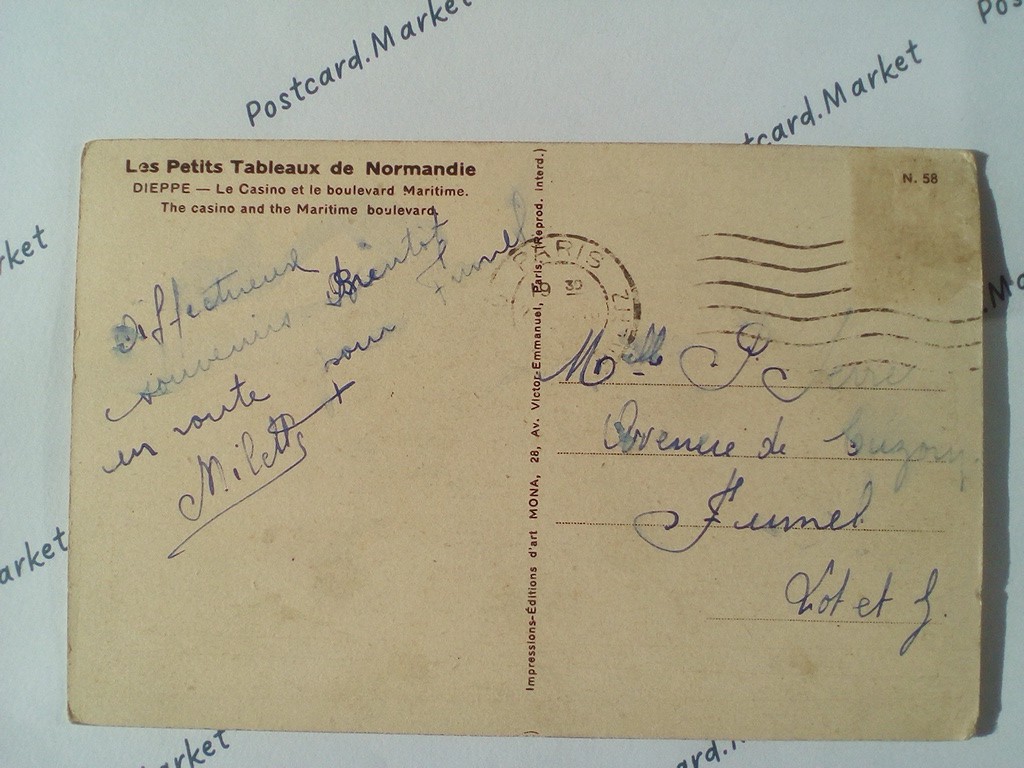 Postcard.Market
Postcard.Market
Les Petits Tableaux de Normandie
DIEPPE — Le Casino et le boulevard Maritime.
The casino and the Maritime boulevard.
Affectueux
souvenirs Bientôt
en route pour Fumel
Impressions-Éditions d'art MONA, 28, Av. Victor-Emmanuel, Paris. (Reprod. interd.)
N. 58
PARIS
30
Melle P.
Avenue de
Fumel
Lot et G.